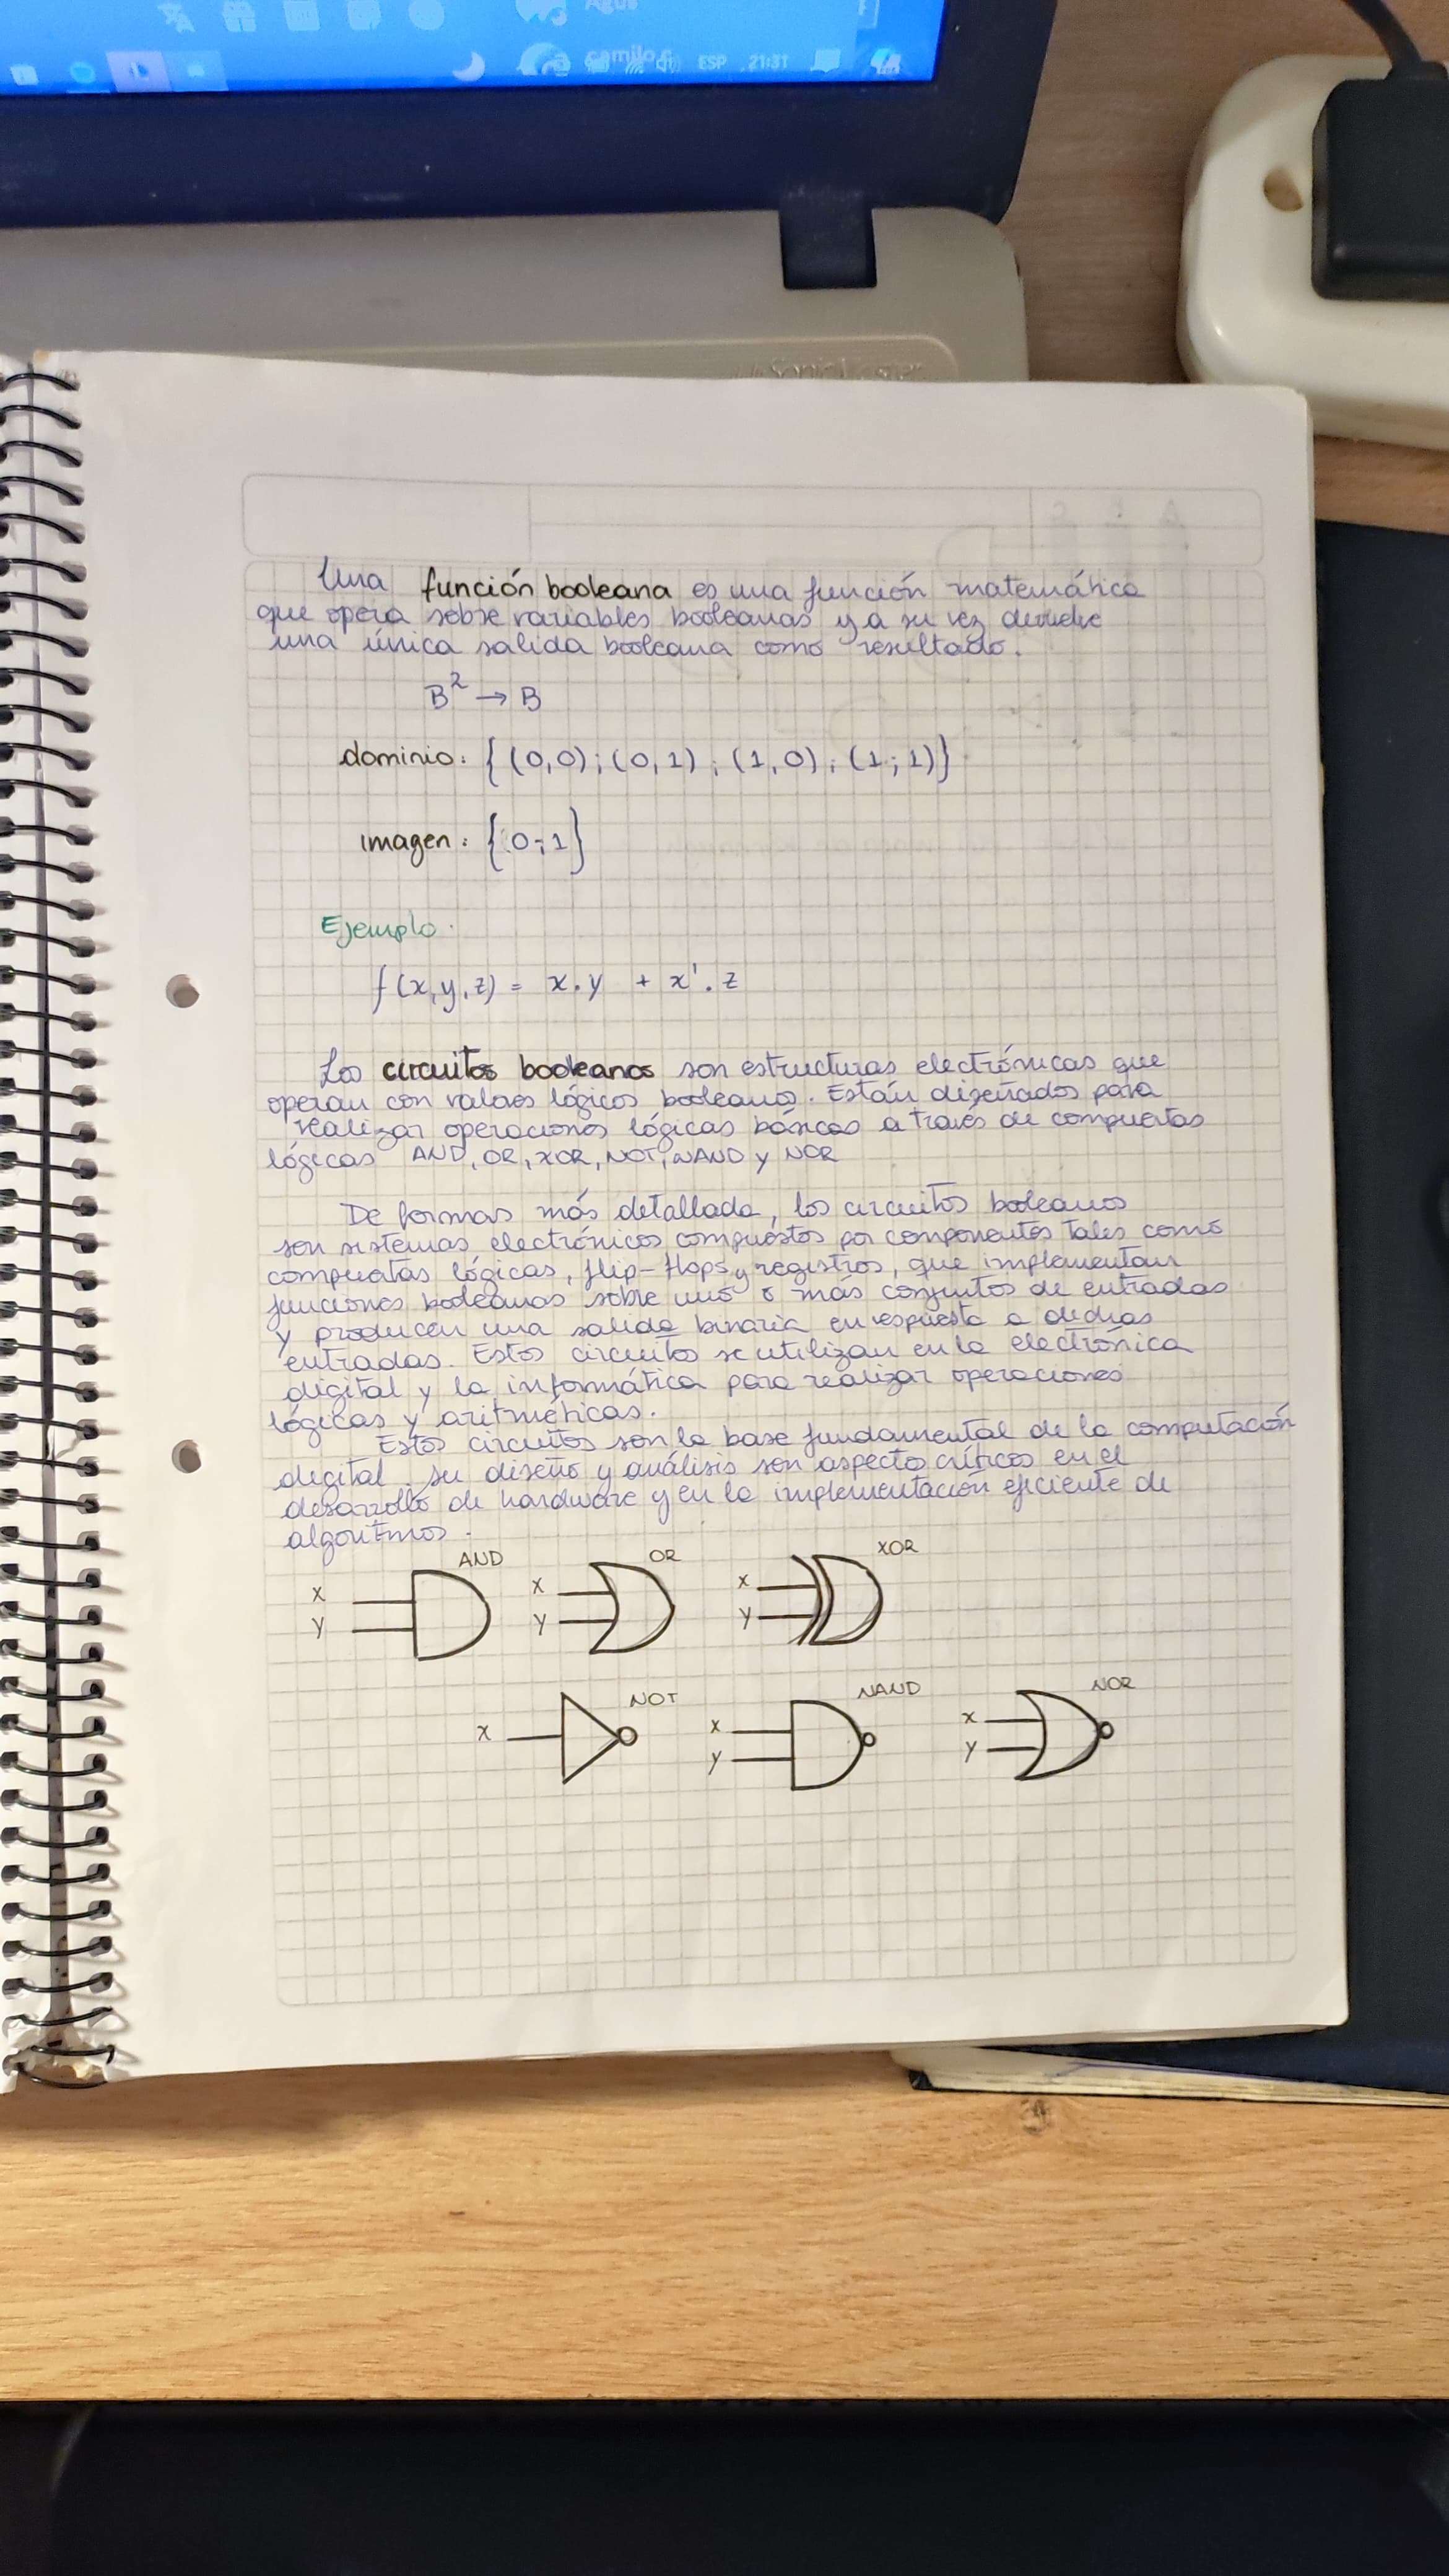 Agus
camilo.c
ESP 21:31
SonicMaster
Una función booleana es una función matemática
que opera sobre variables booleanas y a su vez devuelve
una única salida booleana como resultado.
B² → B
dominio: {(0,0);(0,1);(1,0);(1;1)}
imagen: {0;1}
Ejemplo.
f(x,y,z) = x.y + x'.z
Los circuitos booleanos son estructuras electrónicas que
operan con valores lógicos booleanos. Están diseñados para
realizar operaciones lógicas básicas a través de compuertas
lógicas AND, OR, XOR, NOT, NAND y NOR
De formas más detallada, los circuitos booleanos
son sistemas electrónicos compuestos por componentes tales como
compuertas lógicas, flip-flops y registros, que implementan
funciones booleanas sobre uno o más conjuntos de entradas
y producen una salida binaria en respuesta a dichas
entradas. Estos circuitos se utilizan en la electrónica
digital y la informática para realizar operaciones
lógicas y aritméticas.
Estos circuitos son la base fundamental de la computación
digital. su diseño y análisis son aspecto críticos en el
desarrollo de hardware y en la implementación eficiente de
algoritmos.
AND OR XOR
x x x
y y y
NOT NAND NOR
x x x
y y